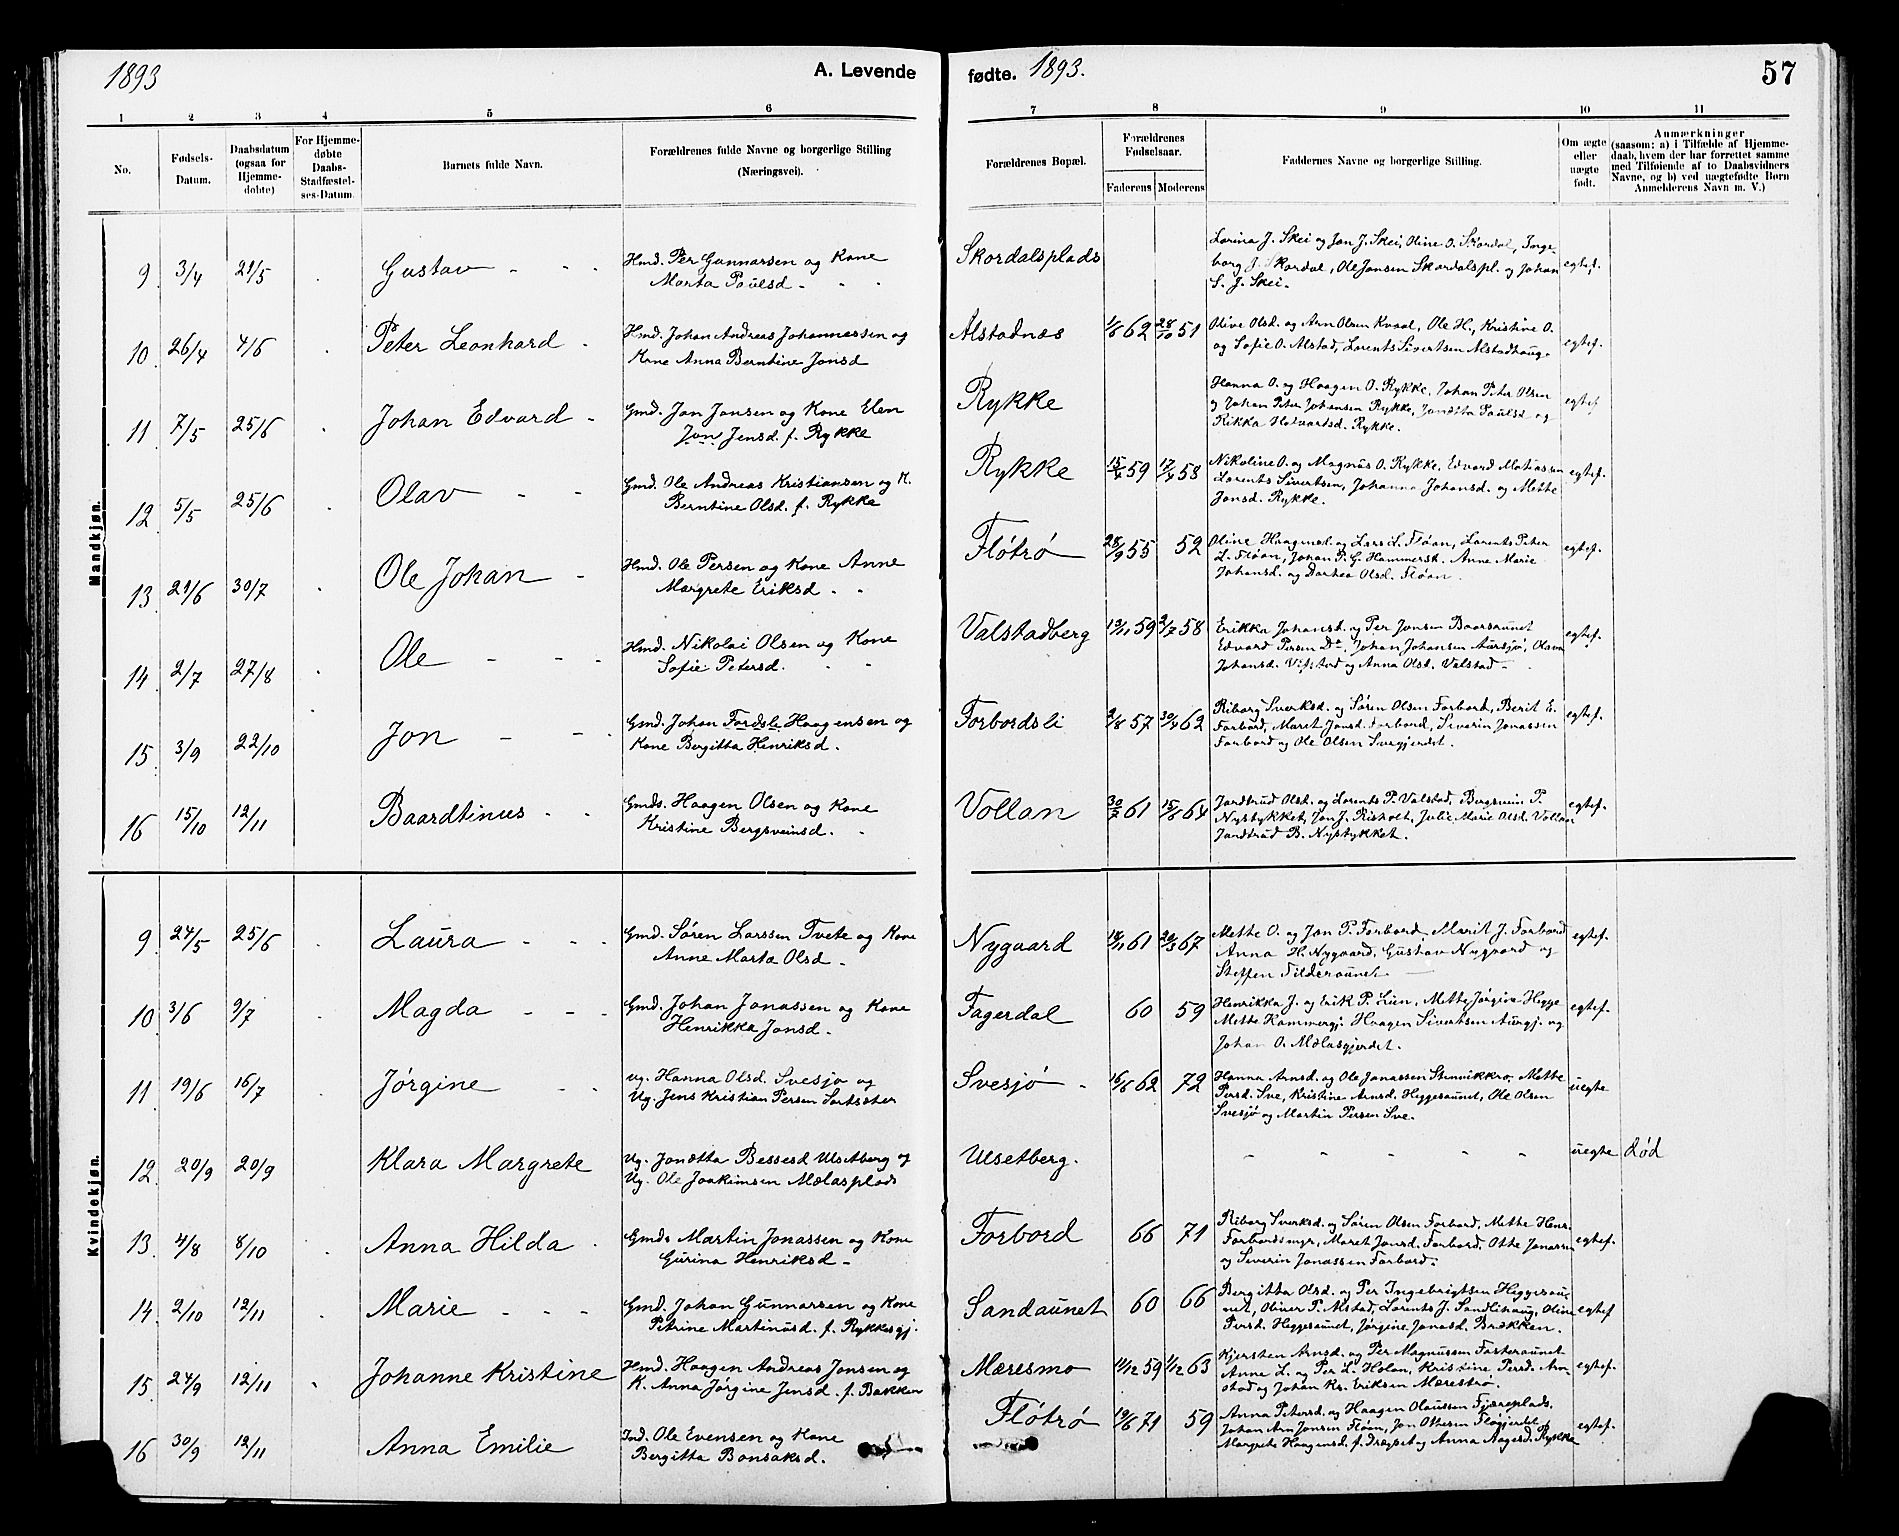 1893
A. Levende
fødte. 1893.
57
1 2 3 4 5 6 7 8 9 10 11
No.
Fødsels-
Datum.
Daabsdatum
(ogsaa for
Hjemme-
døbte)
For Hjemme-
døbte
Daabs-
Stadfæstel-
ses-Datum.
Barnets fulde Navn.
Forældrenes fulde Navne og borgerlige Stilling
(Næringsvei).
Forældrenes Bopæl.
Forældrenes
Fødselsaar.
Faderens Moderens
Faddernes Navne og borgerlige Stilling.
Om ægte
eller
uægte
født.
Anmærkninger
(saasom: a) i Tilfælde af Hjemme-
daab, hvem der har forrettet samme
med Tilføiende af to Daabsvidners
Navne, og b) ved uægtefødte Børn
Anmelderens Navn m. V.)
Mandkjøn.
9 3/4 21/5 Gustav - - -
Hmd. Per Gunnarsen og Kone
Marta Paulsd. - - -
Skordalsplads
Lorina J. Skei og Jon J. Skei, Oline O. Skordal, Inge-
borg J. Skordal, Ole Jonsen Skordalspl. og Johan
S. J. Skei.
egtef.
10 26/4 4/6 Peter Leonhard -
Hmd. Johan Andreas Johannessen og
Kone Anna Berntine Jonsd
Alstadnæs 1/8 62 28/10 51
Olive Olsd. og Arn Olsen Kvaal, Ole H., Kristine O.
og Sofie O. Alstad, Lorents Sivertsen Alstadhaug.
egtef.
11 7/5 25/6 Johan Edvard -
Gmd. Jon Jonsen og Kone Elen
Jon Jensd. f. Rykke
Rykke
Hanna O. og Haagen O. Rykke, Johan Peter Olsen
og Johan Peter Johansen Rykke, Jonetta Paulsd og
Rikka Halvartsd. Rykke.
egtef
12 5/5 25/6 Olav - -
Gmd. Ole Andreas Kristiansen og K.
Berntine Olsd. f. Rykke
Rykke 15/4 59 17/4 58
Nikoline O. og Magnus O. Rykke, Edvard Matiassen
Lorents Sivertsen, Johanna Johansd. og Mette
Jonsd. Rykke.
egtef.
13 21/6 30/7 Ole Johan -
Hmd. Ole Persen og Kone Anne
Margrete Eriksd. - -
Fløtrø 28/9 55 52
Oline Haagensd. og Lars L. Fløan, Lorents Peter
L. Fløan, Johan P. G. Hammersk. Anne Marie
Johansd. og Dorthea Olsd. Fløan.
egtef.
14 2/7 27/8 Ole - - -
Hmd. Nikolai Olsen og Kone
Sofie Petersd. - -
Valstadberg 19/11 59 2/7 58
Erikka Johansd. og Per Jonsen Baarsaunet
Edvard Persen Do, Johan Johansen Aursjø, Olava
Johansd. Vifstad og Anna Olsd. Valstad.
egtef.
15 3/9 22/10 Jon - - -
Gmd. Johan Fordsli Haagensen og
Kone Bergitta Henriksd.
Forbordsli 2/8 57 30/4 62
Riborg Sverksd. og Søren Olsen Forbord, Berit E.
Forbord, Maret Jonsd. Forbord, Severin Jonassen
Forbord og Ole Olsen Svegjerdet.
egtef.
16 15/10 12/11 Baardtinus - -
Gmds. Haagen Olsen og Kone
Kristine Bergsveinsd. -
Vollan 30/7 61 15/8 64
Jardtrud Olsd. og Lorents P. Valstad, Bergsvein P.
Nystykket, Jon J. Risholt, Julie Marie Olsd. Vollan
Jardtrud B. Nystykket.
egtef.
Kvindekjøn.
9 24/5 25/6 Laura - - -
Gmd. Søren Larssen Tvete og Kone
Anne Marta Olsd -
Nygaard 18/11 61 20/3 67
Mette O. og Jon P. Forbord, Marit J. Forbord
Anna H. Nygaard, Gustav Nygaard og
Steffen Tilderaunet.
egtef.
10 3/6 9/7 Magda - - -
Gmd. Johan Jonassen og Kone
Henrikka Jonsd. -
Fagerdal 60 59
Henrikka J. og Erik P. Lien, Mette Jørgine Hegge
Mette Kammergj. Haagen Sivertsen Aurgj. og
Johan O. Mælasgjerdet.
egtef.
11 19/6 16/7 Jørgine - -
ug. Hanna Olsd. Svesjø og
Ug. Jens Kristian Persen Sortsæter
Svesjø - 16/6 62 72
Hanna Arnsd. og Ole Jonassen Stenvikkro, Mette
Persd. Sve, Kristine Arnsd. Heggesaunet, Ole Olsen
Svesjø og Martin Persen Sve.
uegte
12 20/9 20/9 Klara Margrete
Ug. Jonetta Bessesd Ulsetberg og
Ug. Ole Joakimsen Mælasplads
Ulsetberg.
- - - - -
uegte død
13 4/8 8/10 Anna Hilda -
Gmds Martin Jonassen og Kone
Gurina Henriksd -
Forbord 66 71
Riborg Sverksd. og Søren Olsen Forbord, Mette Henr.
Forbordsmyr, Maret Jonsd. Forbord, Otte Jonassen
og Severin Jonassen Forbord.
egtef.
14 2/10 12/11 Marie - - -
Gmd. Johan Gunnarsen og Kone
Petrine Martinusd. f. Rykkesgj.
Sandaunet 60 66
Bergitta Olsd. og Per Ingebrigtsen Heggesau-
net, Oliver P. Alstad, Lorents J. Sandlihaug, Oline
Persd. Heggesaunet, Jørgine Jonasd. Brækken.
egtef
15 24/9 12/11 Johanne Kristine
Hmd. Haagen Andreas Jonsen og
K. Anna Jørgine Jensd. f. Bakken
Mæresmo 11/12 59 1/12 63
Kjersten Arnsd. og Per Magnussen Fosteraunet
Anne L. og Per L. Holan, Kristine Persd. Arn-
stad og Johan Kr. Eriksen Mærestrø.
egtef.
16 30/9 12/11 Anna Emilie
Ind. Ole Evensen og Kone
Bergitta Bonsaksd.
Fløtrø 19/6 71 59
Anna Petersd. og Haagen Olaussen Fjæreplads,
Johan Arn Jonsen Fløan, Jon Ottesen Fløgjerdet
Margrete Haagensd. f. Dræpset og Anna Aagesd. Rykke
egtef.